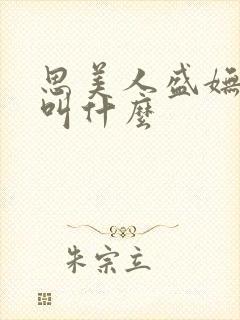 思美人盛嫵
叫什麼
朱宗立